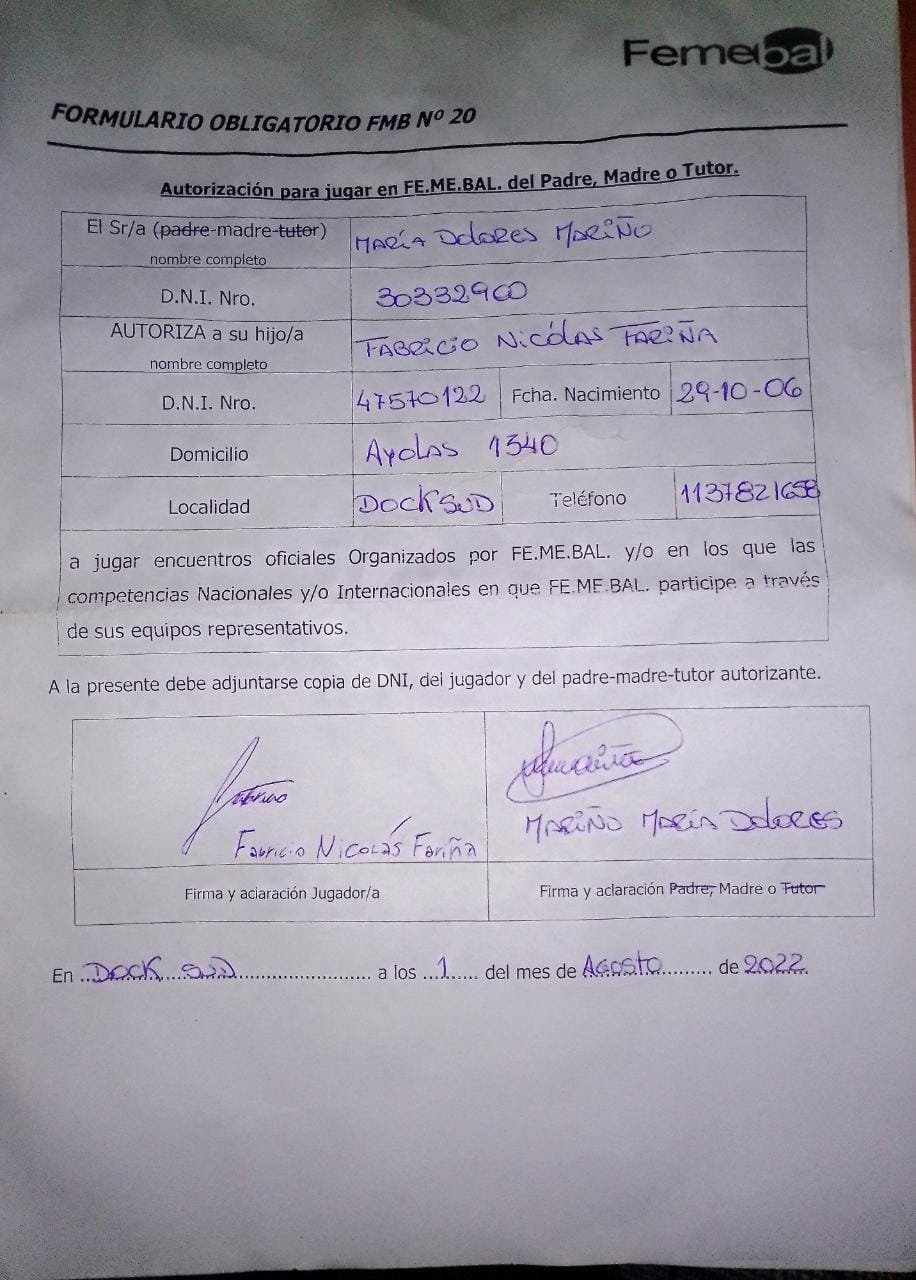 Femebal
FORMULARIO OBLIGATORIO FMB Nº 20
Autorización para jugar en FE.ME.BAL. del Padre, Madre o Tutor.
El Sr/a (padre-madre-tutor) MARÍA DOLORES MARIÑO
nombre completo
D.N.I. Nro. 30332900
AUTORIZA a su hijo/a FABRICIO NICÓLAS FARIÑA
nombre completo
D.N.I. Nro. 47570122 Fcha. Nacimiento 29-10-06
Domicilio AYOLAS 1340
Localidad DOCK SUD Teléfono 1137821658
a jugar encuentros oficiales Organizados por FE.ME.BAL. y/o en los que las
competencias Nacionales y/o Internacionales en que FE.ME.BAL. participe a través
de sus equipos representativos.
A la presente debe adjuntarse copia de DNI, del jugador y del padre-madre-tutor autorizante.
Fabricio Nicolás Fariña
MARIÑO MARÍA DOLORES
Firma y aclaración Jugador/a
Firma y aclaración Padre, Madre o Tutor
En ..DOCK SUD...................... a los ..1..... del mes de AGOSTO......... de 2022.